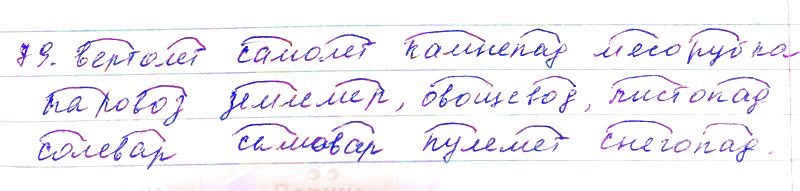 79. вертолёт самолёт камнепад мясорубка
паровоз землемер, овощевод, листопад
солевар самовар пулемёт снегопад.